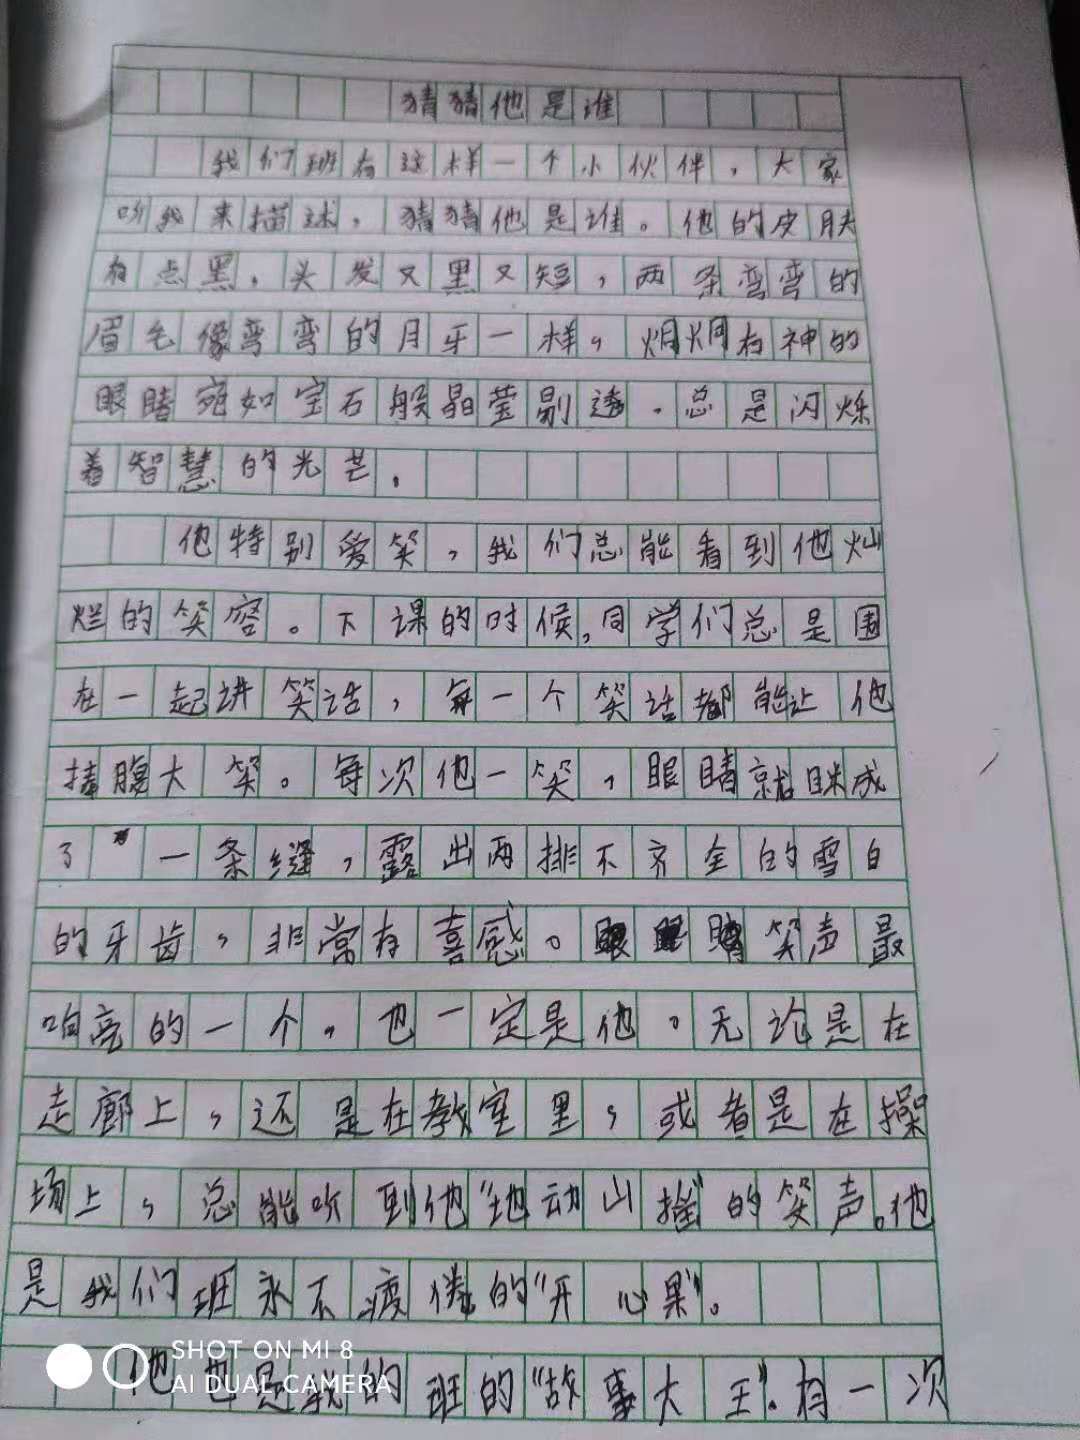 猜猜他是谁
我们班有这样一个小伙伴，大家
听我来描述，猜猜他是谁。他的皮肤
有点黑，头发又黑又短，两条弯弯的
眉毛像弯弯的月牙一样，炯炯有神的
眼睛宛如宝石般晶莹剔透。总是闪烁
着智慧的光芒。
他特别爱笑，我们总能看到他灿
烂的笑容。下课的时候，同学们总是围
在一起讲笑话，每一个笑话都能让他
捧腹大笑。每次他一笑，眼睛就眯成
了一条缝，露出两排不齐全的雪白
的牙齿，非常有喜感。笑声最
响亮的一个，也一定是他。无论是在
走廊上，还是在教室里，或者是在操
场上，总能听到他“地动山摇”的笑声。他
是我们班永不疲倦的“开心果”。
他也是我的班的“故事大王”。有一次
SHOT ON MI 8
AI DUAL CAMERA